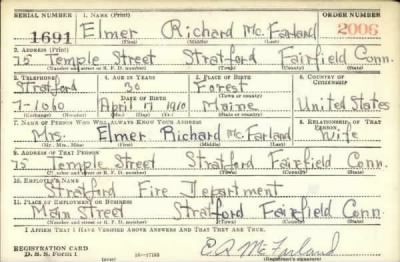 SERIAL NUMBER 1. NAME (Print) ORDER NUMBER
1691 Elmer Richard McFarland 2006
(First) (Middle) (Last)
2. ADDRESS (Print)
75 Temple Street Stratford Fairfield Conn.
(Number and street or R. F. D. number) (Town) (County) (State)
3. TELEPHONE 4. AGE IN YEARS 5. PLACE OF BIRTH 6. COUNTRY OF CITIZENSHIP
Stratford 30 Forest
DATE OF BIRTH (Town or county)
7-1060 April 17 1910 Maine United States
(Exchange) (Number) (Mo.) (Day) (Yr.) (State or country)
7. NAME OF PERSON WHO WILL ALWAYS KNOW YOUR ADDRESS 8. RELATIONSHIP OF THAT PERSON
Mrs. Elmer Richard McFarland Wife
(Mr., Mrs., Miss) (First) (Middle) (Last)
9. ADDRESS OF THAT PERSON
75 Temple Street Stratford Fairfield Conn.
(Number and street or R. F. D. number) (Town) (County) (State)
10. EMPLOYER'S NAME
Stratford Fire Department
11. PLACE OF EMPLOYMENT OR BUSINESS
Main Street Stratford Fairfield Conn.
(Number and street or R. F. D. number) (Town) (County) (State)
I AFFIRM THAT I HAVE VERIFIED ABOVE ANSWERS AND THAT THEY ARE TRUE.
REGISTRATION CARD
D. S. S. Form 1 (over) 16—17105 (Registrant's signature)